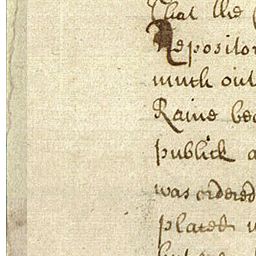 That the
Repositor
much out
Raine bec
publick a
was ordered
placed w